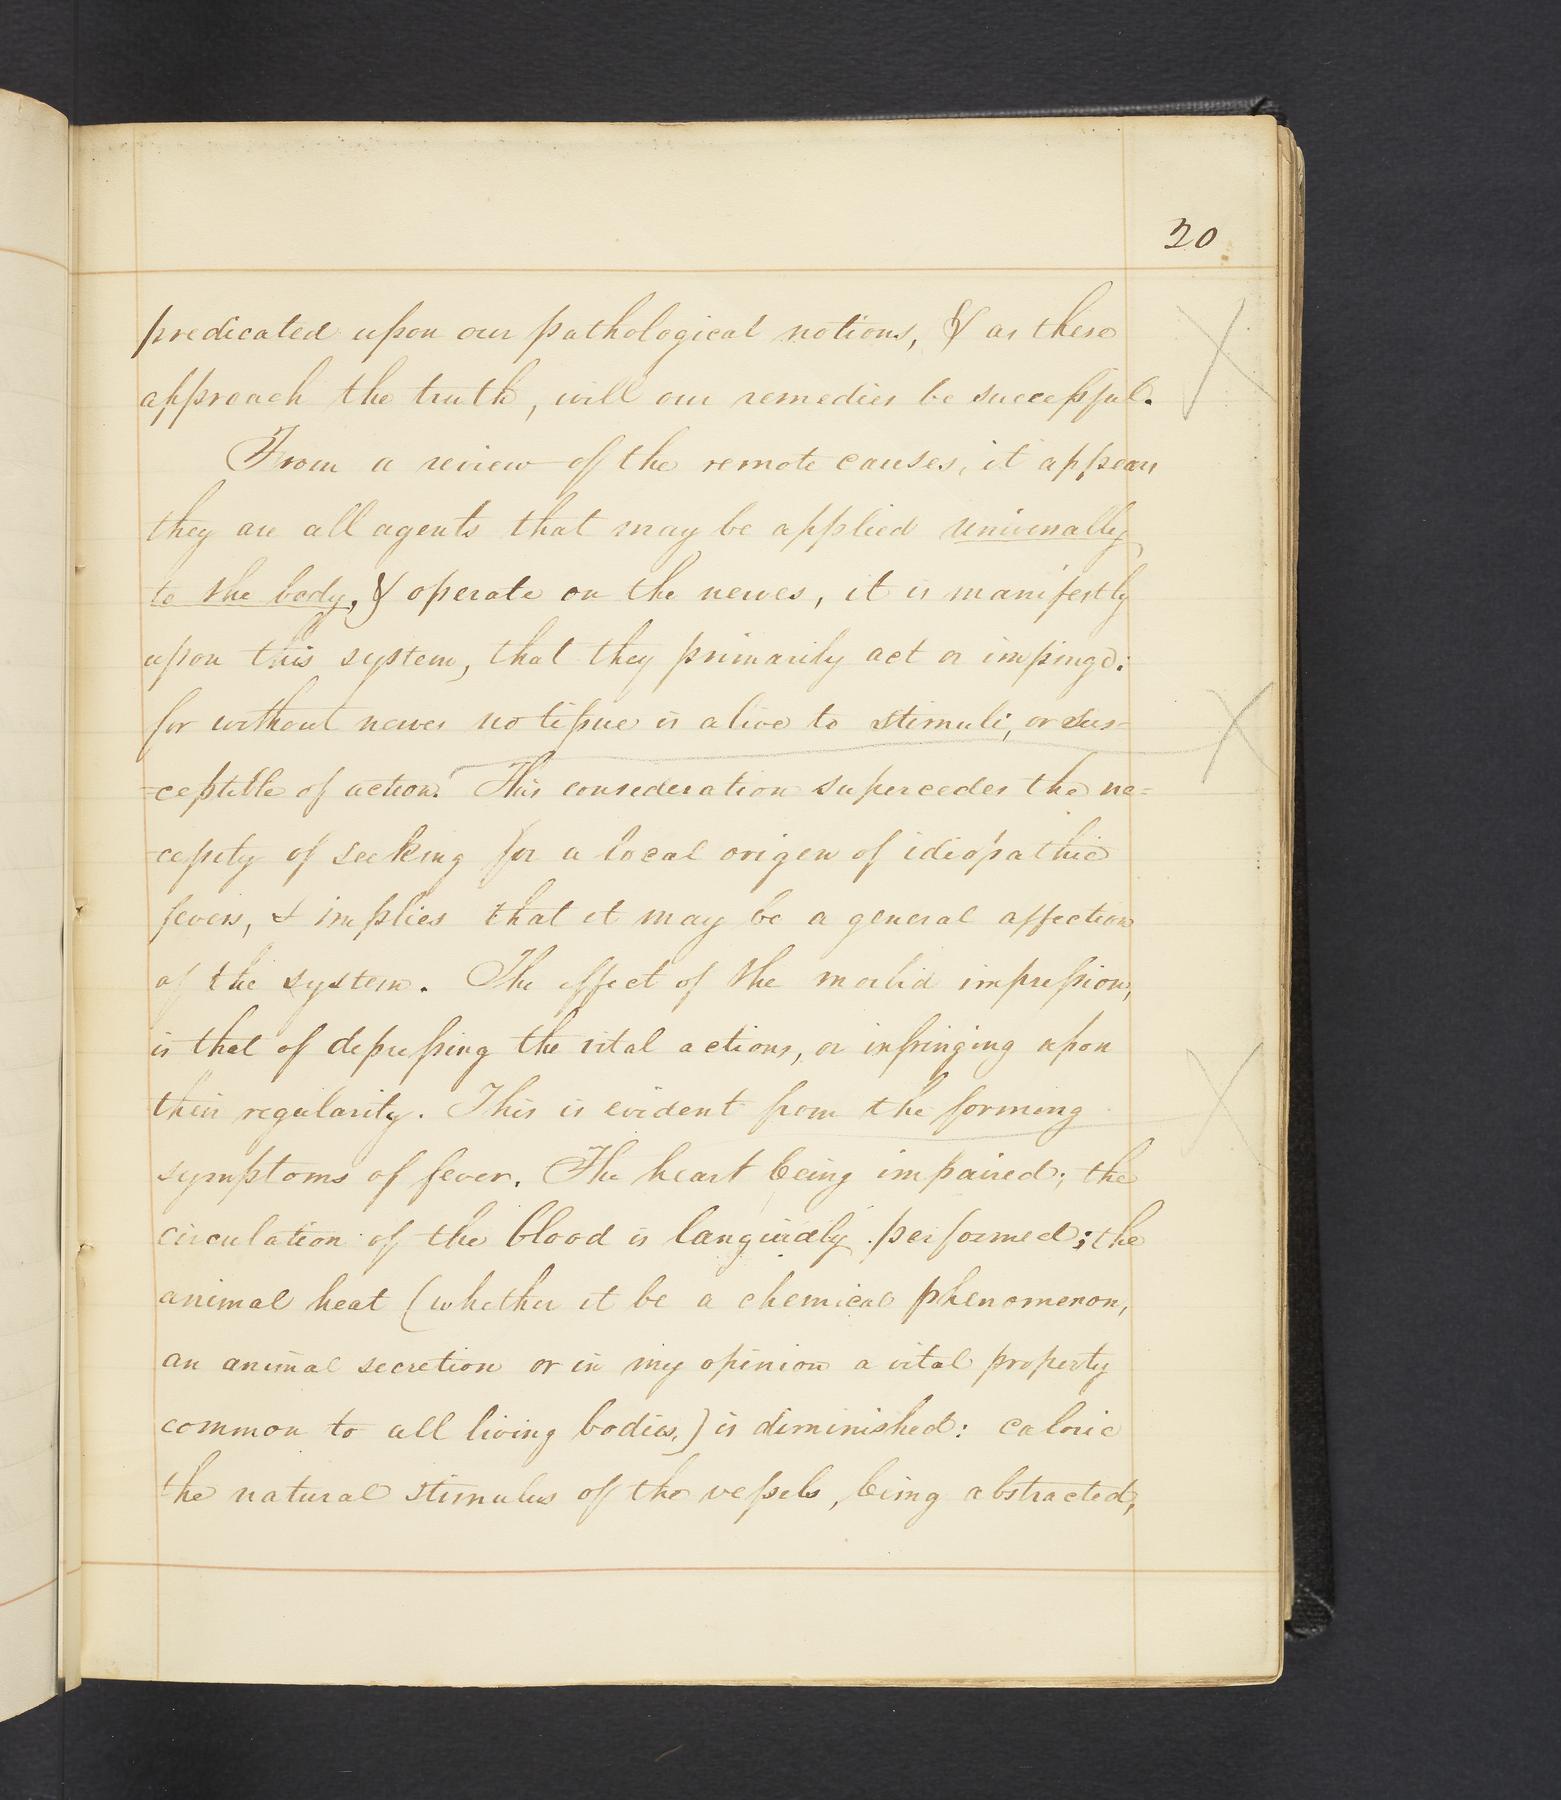 20
predicated upon our pathological notions, & as these
approach the truth, will our remedies be successful.
From a review of the remote causes, it appears
they are all agents that may be applied universally
to the body, & operate on the nerves, it is manifestly
upon this system, that they primarily act or impinge:
for without nerves no tissue is alive to stimuli, or sus-
-ceptible of action. This consideration supercedes the ne-
-cessity of seeking for a local origen of idiopathic
fevers, & implies that it may be a general affection
of the system. The effect of the morbid impression,
is that of depressing the vital actions, or infringing upon
their regularity. This is evident from the forming
symptoms of fever. The heart being impaired; the
circulation of the blood is languidly performed; the
animal heat (whether it be a chemical phenomenon,
an animal secretion or in my opinion a vital property
common to all living bodies,) is diminished: caloric
the natural stimulus of the vessels, being abstracted,